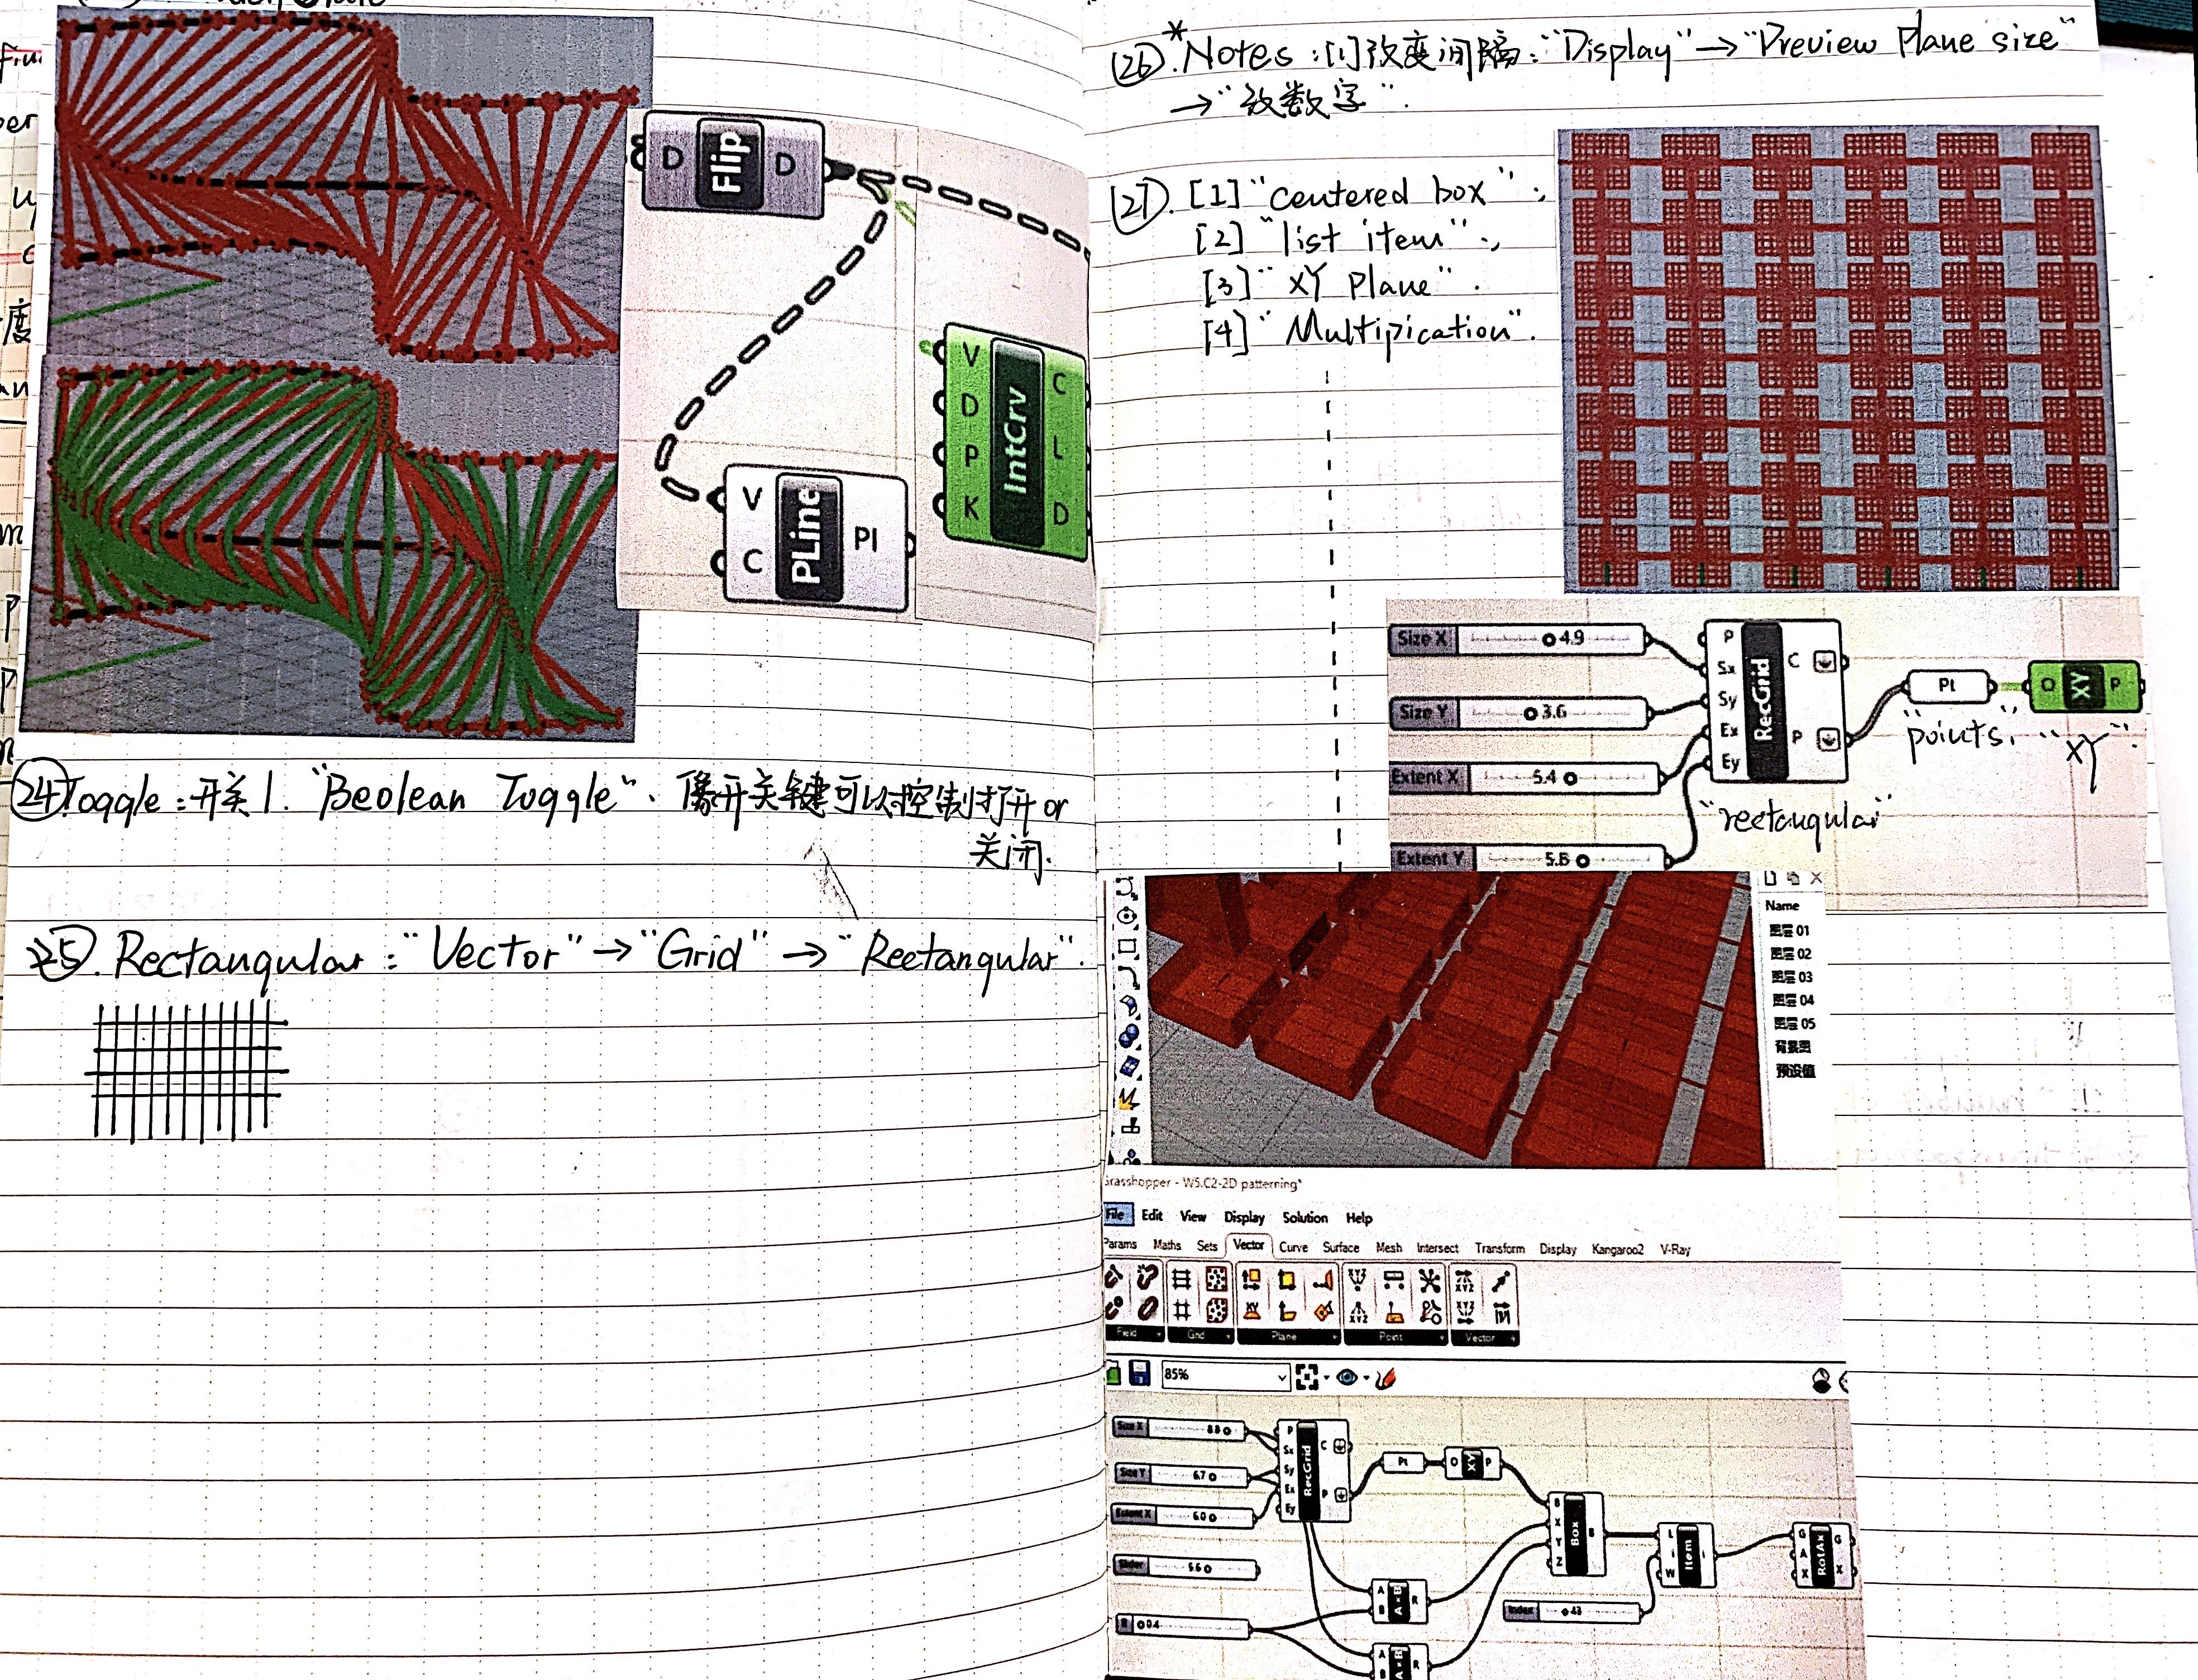 D Flip D
V
D
P
K
IntCrv
C
L
D
V
C
PLine
Pl
24 Toggle : 开关1. "Beolean Toggle". 像开关键可以控制打开 or
关闭.
25. Rectangular : "Vector" → "Grid" → "Rectangular".
26. *Notes : [1] 改变间隔 : "Display" → "Preview Plane size"
→ "改数字".
27. [1] "centered box" ;
[2] "list item" ;
[3] "XY Plane" .
[4] "Multipication".
Size X 4.9
Size Y 3.6
Extent X 5.4
Extent Y 5.6
P
Sx
Sy
Ex
Ey
RecGrid
C
P
Pt
O XY P
"points". "XY".
"rectangular"
Name
图层 01
图层 02
图层 03
图层 04
图层 05
背景图
预设值
Grasshopper - W5.C2-2D patterning*
File Edit View Display Solution Help
Params Maths Sets Vector Curve Surface Mesh Intersect Transform Display Kangaroo2 V-Ray
Field Grid Plane Point Vector
85%
Size X 8.8
Size Y 6.7
Extent X 6.0
Slider 5.6
0.4
P
Sx
Sy
Ex
Ey
RecGrid
C
P
Pt
O XY P
B
X
Y
Z
Box
B
L
i
W
Item
i
G
A
X
RotAx
G
X
Index 43
A
B
A×B
R
A
B
A×B
R